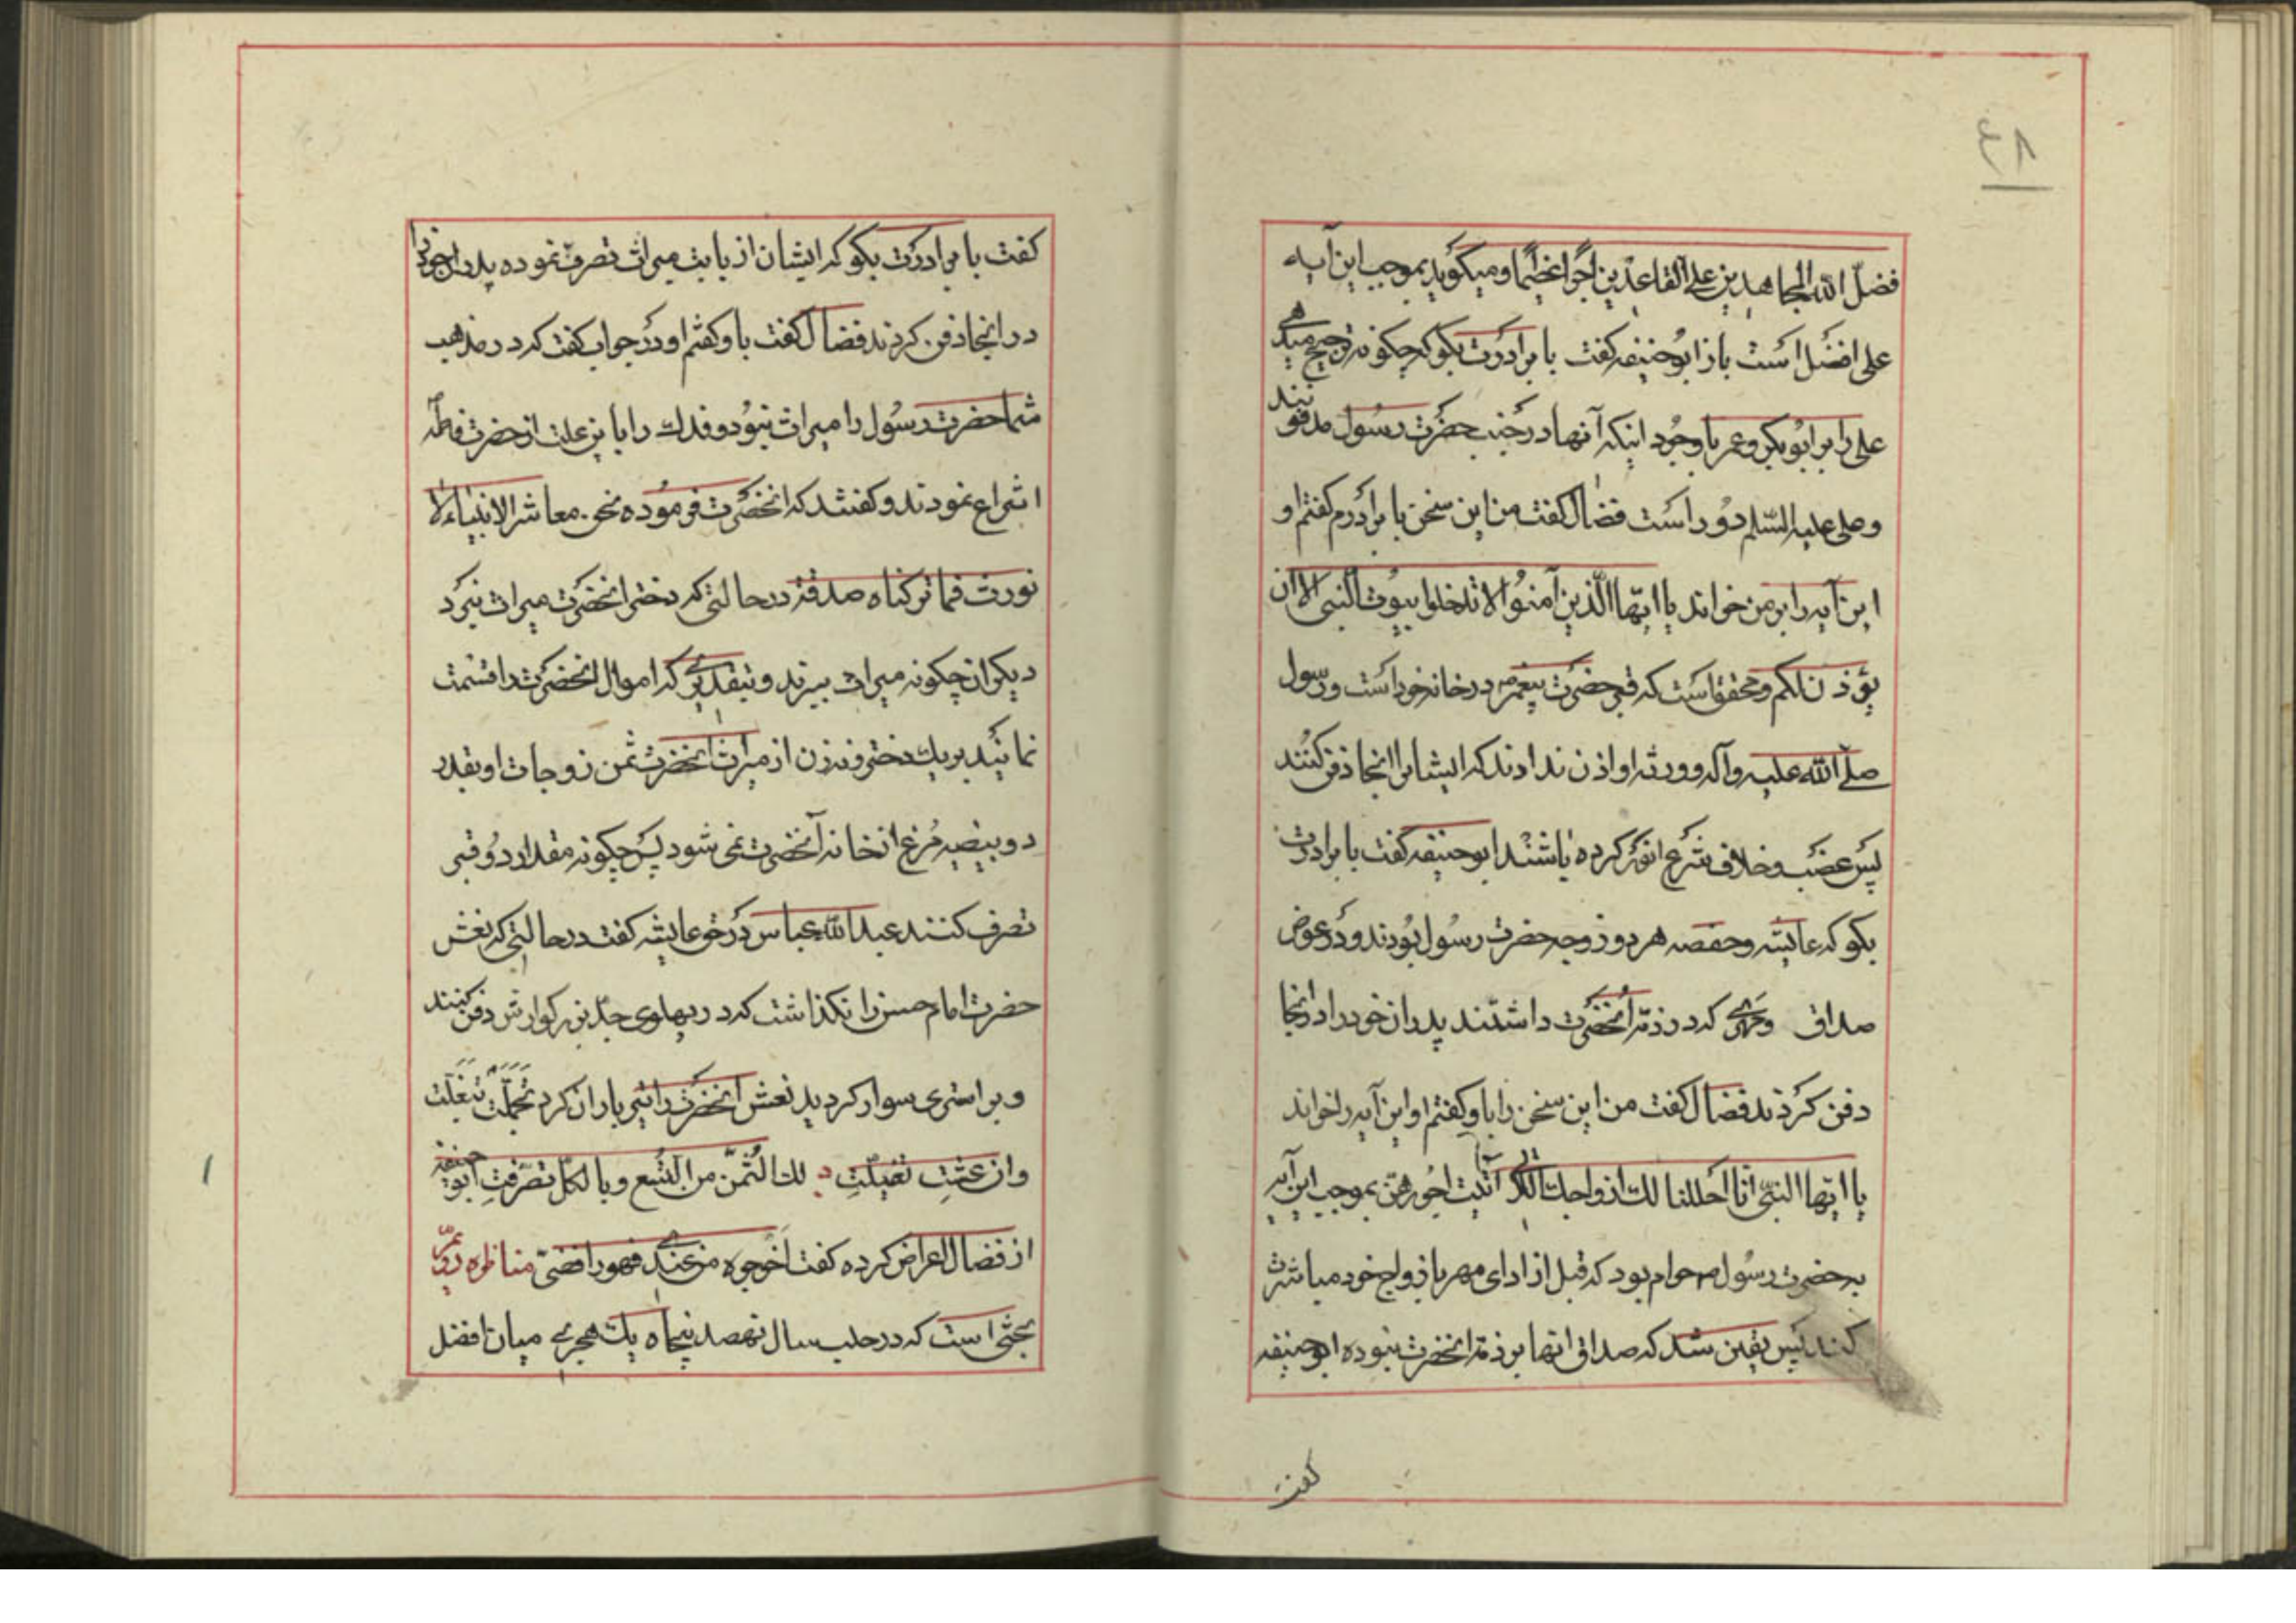 فضل الله المجاهدین علی القاعدین اجرا عظیما و میکوید بموجب این آیه
علی افضل است باز ابوحنیفه کفت با برادرت بکو که چکونه ترجیح میدهی
علی را بر ابوبکر و عمر با وجود اینکه آنها در جنب حضرت رسول مدفونند
و علی علیه السلم دور است فضال کفت من این سخن با برادرم کفتم او
این آیه را بر من خواند یا ایها الذین آمنوا لا تدخلوا بیوت النبی الا ان
یؤذن لکم و محقق است که قبر حضرت پیغمبر در خانه خود است و رسول
صلی الله علیه و آله و ورثه او اذن ندادند که ایشانرا انجا دفن کنند
پس غصب و خلاف شرع کرده باشند ابوحنیفه کفت با برادرت
بکو که عایشه و حفصه هر دو زوجه حضرت رسول بودند و در عوض
صداق و مهری که در ذمه آنحضرت داشتند پدران خود را در انجا
دفن کردند فضال کفت من این سخن را باو کفتم او این آیه را خواند
یا ایها النبی انا احللنا لک ازواجک اللاتی آتیت اجورهن بموجب این آیه
بر حضرت رسول حرام بود که قبل از ادای مهر با ازواج خود مباشرت
کند پس یقین شد که صداق انها بر ذمه انحضرت نبوده ابوحنیفه
کفت
کفت با برادرت بکو که ایشان از بابت میراث تصرف نموده پدران خود را
در انجا دفن کردند فضال کفت باو کفتم او در جواب کفت که در مذهب
شما حضرت رسول را میراث نبود و فدک را باین علت از حضرت فاطمه
انتزاع نمودند و کفتند که انحضرت فرموده نحن معاشر الانبیاء لا
نورث فما ترکناه صدقة در حالتی که دختر انحضرت میراث نبرد
دیکران چکونه میراث ببرند و بتقدیری که اموال انحضرت را قسمت
نمائید بر یک دختر و نه زن از میراث انحضرت ثمن زوجات او بقدر
دو بیضه مرغ از خانه آنحضرت نمی شود پس چکونه مقدار دو قبر
تصرف کنند عبدالله عباس در حق عایشه کفت در حالتی که نعش
حضرت امام حسن را نکذاشت که در پهلوی جد بزرکوارش دفن کنند
و بر استری سوار کردید نعش انحضرت را تیر باران کرد تجملت تبغلت
وان عشت تفیلت لک الثمن من التسع و بالکل تصرفت ابوحنیفه
از فضال اعراض کرده کفت اخرجوه من عندی فهو رافضی مناظره
بحثی است که در حلب سال نهصد پنجاه یک هجری میان افضل